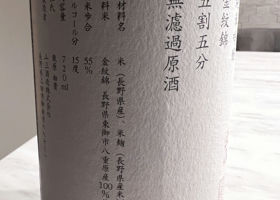 金紋錦
五割五分
無濾過原酒
原材料名 米(長野県産)、米麹(長野県産米)
原料米 金紋錦 長野県東御市八重原産100%
精米歩合 55%
アルコール分 15度
内容量 720ml
山三酒造株式会社